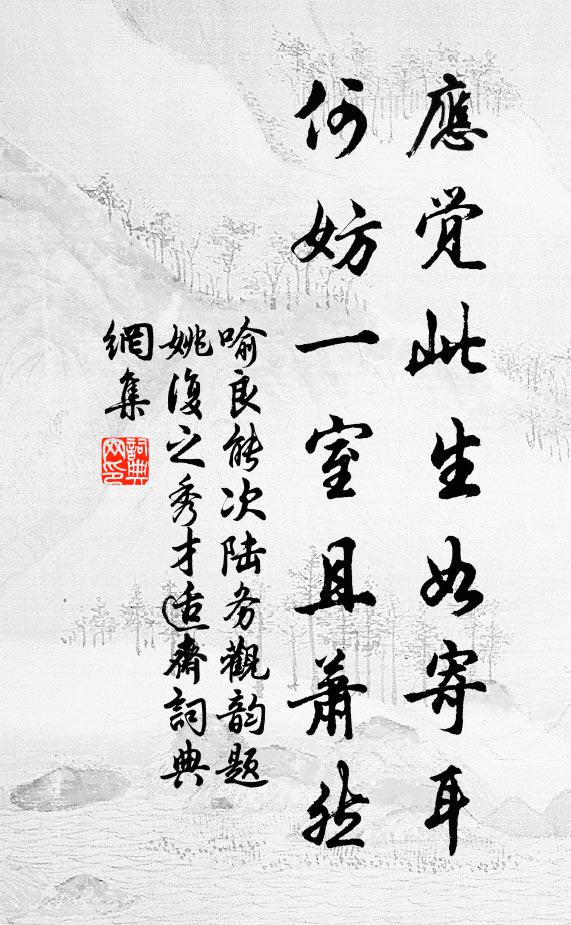 應覺此生如寄耳
何妨一室且蕭然
喻良能次陆务觀韵题
姚復之秀才适齋詞典
網集
詞典
网印